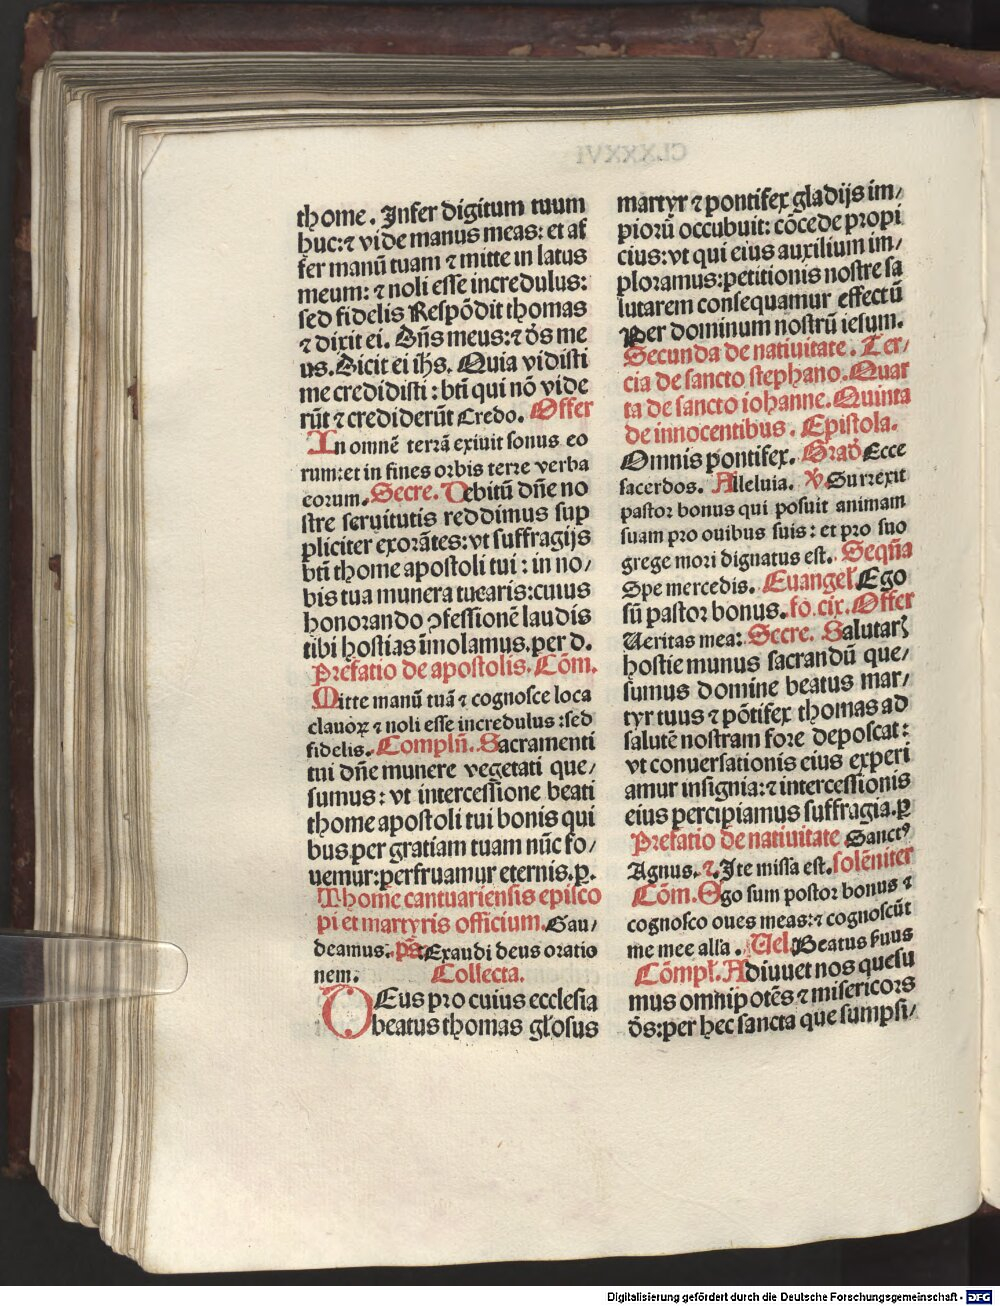 thome. Infer digitum tuum
huc: ⁊ vide manus meas: et af
fer manū tuam ⁊ mitte in latus
meum: ⁊ noli esse incredulus:
sed fidelis Respōdit thomas
⁊ dixit ei. Dn̄s meus: ⁊ de̅s me
us. Dicit ei ih̄s. Quia vidisti
me credidisti: bt̄i qui nō vide
rūt ⁊ crediderūt Credo. Offer
In omnē terrā exiuit sonus eo
rum: et in fines orbis terre verba
eorum. Secre. Debitū dn̄e no
stre seruitutis reddimus sup
pliciter exorātes: vt suffragijs
bt̄i thome apostoli tui: in no/
bis tua munera tuearis: cuius
honorando ꝯfessionē laudis
tibi hostias īmolamus. per d.
Prefatio de apostolis. Cōm.
Mitte manū tuā ⁊ cognosce loca
clauoꝝ ⁊ noli esse incredulus: sed
fidelis. Compln̄. Sacramenti
tui dn̄e munere vegetati que/
sumus: vt intercessione beati
thome apostoli tui bonis qui
bus per gratiam tuam nūc fo/
uemur: perfruamur eternis. p.
Thome cantuariensis episco
pi et martyris officium. Gau/
deamus. ps̄. Exaudi deus oratio
nem. Collecta.
DEus pro cuius ecclesia
beatus thomas gl̄osus
martyr ⁊ pontifex gladijs im/
piorū occubuit: cōcede propi
cius: vt qui eius auxilium im/
ploramus: petitionis nostre sa
lutarem consequamur effectū
Per dominum nostrū iesum.
Secunda de natiuitate. Ter/
cia de sancto stephano. Quar
ta de sancto iohanne. Quinta
de innocentibus. Epistola.
Omnis pontifex. Grad̄ Ecce
sacerdos. Alleluia. ℣ Surrexit
pastor bonus qui posuit animam
suam pro ouibus suis: et pro suo
grege mori dignatus est. Seqn̄a
Spe mercedis. Euangel̄. Ego
sū pastor bonus. fo. cix. Offer
Ueritas mea: Secre. Salutarꝫ
hostie munus sacrandū que/
sumus domine beatus mar/
tyr tuus ⁊ pōtifex thomas ad
salutē nostram fore deposcat:
vt conuersationis eius experi
amur insignia: ⁊ intercessionis
eius percipiamus suffragia. ꝑ
Prefatio de natiuitate Sanctꝰ
Agnus. ⁊. Ite missa est. solēniter
Cōm. Ego sum postor bonus ⁊
cognosco oues meas: ⁊ cognoscūt
me mee alla. Uel. Beatus ẜuus
Cōmpl̄. Adiuuet nos quesu
mus omnipotēs ⁊ misericors
de̅s: per hec sancta que sumpsi/
Digitalisierung gefördert durch die Deutsche Forschungsgemeinschaft - DFG